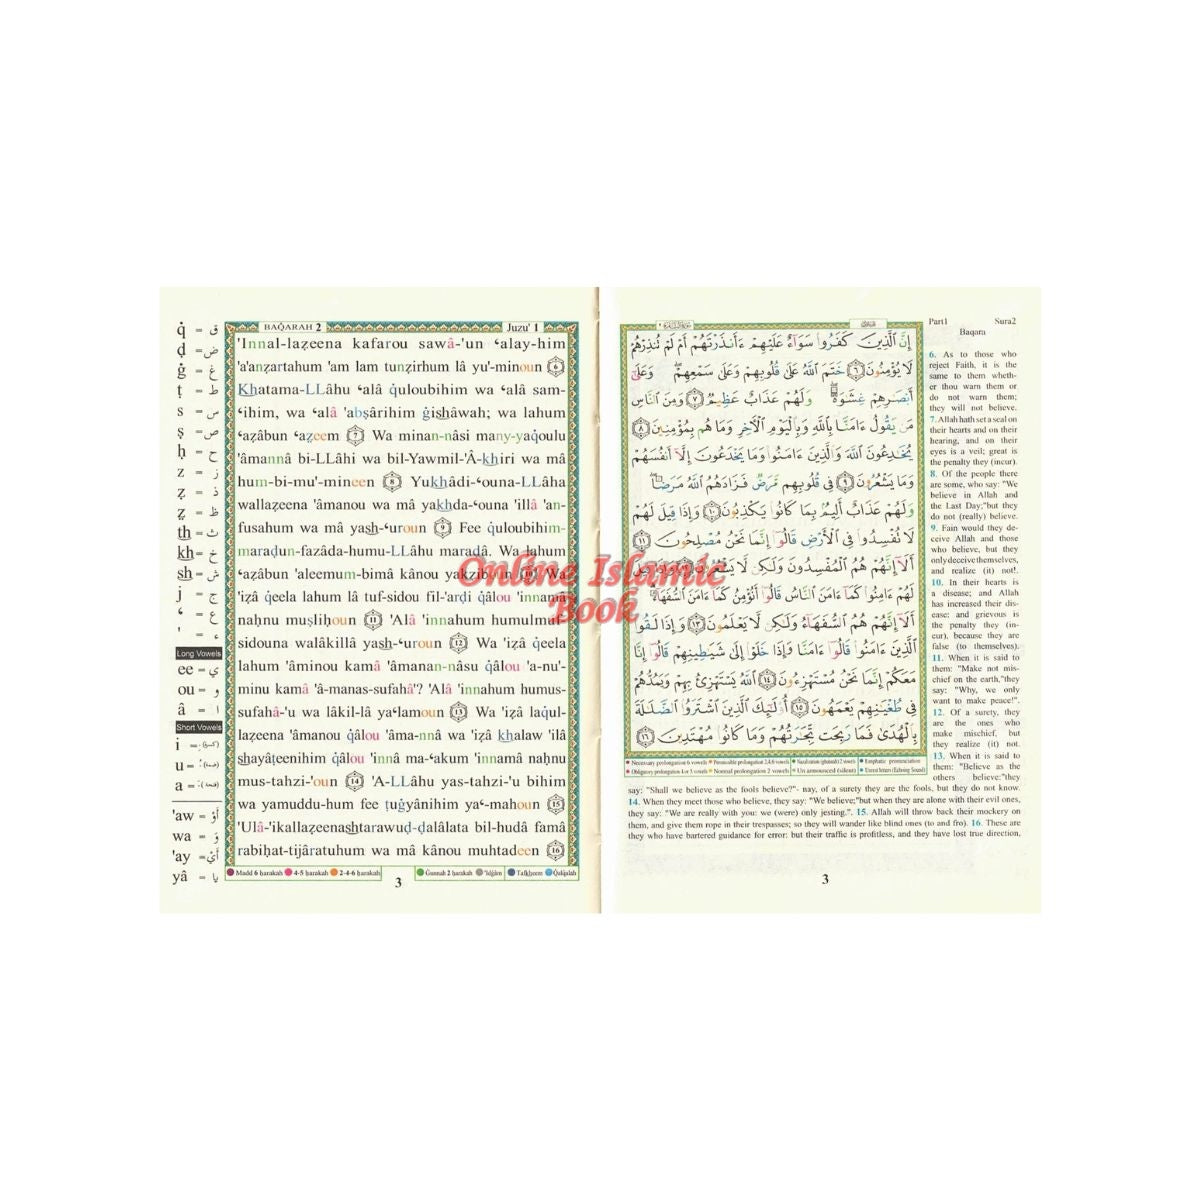 q̇ = ق
ḍ = ض
ġ = غ
ṭ = ط
s = س
ṣ = ص
ḥ = ح
z = ز
ẓ = ذ
th = ث
kh = خ
sh = ش
j = ج
ʿ = ع
' = ء
Long Vowels
ee = ي
ou = و
â = ا
Short Vowels
i
u
a
'aw = أَوْ
wa = وَ
'ay = أَيْ
yâ = يا
BAQARAH 2
Juzu' 1
'Innal-laẓeena kafarou sawâ-'un ʿalay-him
'a'anẓartahum 'am lam tunẓirhum lâ yu'-minoun 6
Khatama-LLâhu ʿalâ q̇uloubihim wa ʿalâ sam-
ʿihim, wa ʿalâ 'abṣârihim ġishâwah; wa lahum
ʿaẓâbun ʿaẓeem 7 Wa minan-nâsi many-yaq̇oulu
'âmannâ bi-LLâhi wa bil-Yawmil-'Â-khiri wa mâ
hum-bi-mu'-mineen 8 Yukhâdi-ʿouna-LLâha
wallaẓeena 'âmanou wa mâ yakhda-ʿouna 'illâ 'an-
fusahum wa mâ yash-ʿuroun 9 Fee q̇uloubihim-
maraḍun-fazâda-humu-LLâhu maraḍâ. Wa lahum
ʿaẓâbun 'aleemum-bimâ kânou yakẓiboun 10 Wa
'iẓâ q̇eela lahum lâ tuf-sidou fil-'arḍi q̇âlou 'innamâ
naḥnu muṣliḥoun 11 'Alâ 'innahum humulmuf-
sidouna walâkillâ yash-ʿuroun 12 Wa 'iẓâ q̇eela
lahum 'âminou kamâ 'âmanan-nâsu q̇âlou 'a-nu'-
minu kamâ 'â-manas-sufahâ'? 'Alâ 'innahum humus-
sufahâ-'u wa lâkil-lâ yaʿlamoun 13 Wa 'iẓâ laqul-
laẓeena 'âmanou q̇âlou 'âma-nnâ wa 'iẓâ khalaw 'ilâ
shayâṭeenihim q̇âlou 'innâ ma-ʿakum 'innamâ naḥnu
mus-tahzi-'oun 14 'A-LLâhu yas-tahzi-'u bihim
wa yamuddu-hum fee ṭuġyânihim yaʿ-mahoun 15
'Ulâ-'ikallaẓeenashtarawuḍ-ḍalâlata bil-hudâ famâ
rabiḥat-tijâratuhum wa mâ kânou muhtadeen 16
Madd 6 ḥarakah 4-5 ḥarakah 2-4-6 ḥarakah
Gunnah 2 ḥarakah 'Idġâm Tafkheem Qalqalah
3
إِنَّ ٱلَّذِينَ كَفَرُوا۟ سَوَآءٌ عَلَيْهِمْ ءَأَنذَرْتَهُمْ أَمْ لَمْ تُنذِرْهُمْ
لَا يُؤْمِنُونَ ٦ خَتَمَ ٱللَّهُ عَلَىٰ قُلُوبِهِمْ وَعَلَىٰ سَمْعِهِمْ ۖ وَعَلَىٰٓ
أَبْصَٰرِهِمْ غِشَٰوَةٌ ۖ وَلَهُمْ عَذَابٌ عَظِيمٌ ٧ وَمِنَ ٱلنَّاسِ
مَن يَقُولُ ءَامَنَّا بِٱللَّهِ وَبِٱلْيَوْمِ ٱلْءَاخِرِ وَمَا هُم بِمُؤْمِنِينَ ٨
يُخَٰدِعُونَ ٱللَّهَ وَٱلَّذِينَ ءَامَنُوا۟ وَمَا يَخْدَعُونَ إِلَّآ أَنفُسَهُمْ
وَمَا يَشْعُرُونَ ٩ فِى قُلُوبِهِم مَّرَضٌ فَزَادَهُمُ ٱللَّهُ مَرَضًا ۖ
وَلَهُمْ عَذَابٌ أَلِيمٌۢ بِمَا كَانُوا۟ يَكْذِبُونَ ١٠ وَإِذَا قِيلَ لَهُمْ
لَا تُفْسِدُوا۟ فِى ٱلْأَرْضِ قَالُوٓا۟ إِنَّمَا نَحْنُ مُصْلِحُونَ ١١
أَلَآ إِنَّهُمْ هُمُ ٱلْمُفْسِدُونَ وَلَٰكِن لَّا يَشْعُرُونَ ١٢ وَإِذَا قِيلَ
لَهُمْ ءَامِنُوا۟ كَمَآ ءَامَنَ ٱلنَّاسُ قَالُوٓا۟ أَنُؤْمِنُ كَمَآ ءَامَنَ ٱلسُّفَهَآءُ ۗ
أَلَآ إِنَّهُمْ هُمُ ٱلسُّفَهَآءُ وَلَٰكِن لَّا يَعْلَمُونَ ١٣ وَإِذَا لَقُوا۟
ٱلَّذِينَ ءَامَنُوا۟ قَالُوٓا۟ ءَامَنَّا وَإِذَا خَلَوْا۟ إِلَىٰ شَيَٰطِينِهِمْ قَالُوٓا۟ إِنَّا
مَعَكُمْ إِنَّمَا نَحْنُ مُسْتَهْزِءُونَ ١٤ ٱللَّهُ يَسْتَهْزِئُ بِهِمْ وَيَمُدُّهُمْ
فِى طُغْيَٰنِهِمْ يَعْمَهُونَ ١٥ أُو۟لَٰٓئِكَ ٱلَّذِينَ ٱشْتَرَوُا۟ ٱلضَّلَٰلَةَ
بِٱلْهُدَىٰ فَمَا رَبِحَت تِّجَٰرَتُهُمْ وَمَا كَانُوا۟ مُهْتَدِينَ ١٦
Necessary prolongation 6 vowels Permissible prolongation 2,4,6 vowels Nazalization (ghunnah) 2 vowels Emphatic pronunciation
Obligatory prolongation 4 or 5 vowels Normal prolongation 2 vowels Un announced (silent) Unrest letters (Echoing Sound)
Part1 Sura2
Baqara
6. As to those who
reject Faith, it is the
same to them wheth-
er thou warn them or
do not warn them;
they will not believe.
7. Allah hath set a seal on
their hearts and on their
hearing, and on their
eyes is a veil; great is
the penalty they (incur).
8. Of the people there
are some, who say: "We
believe in Allah and
the Last Day;"but they
do not (really) believe.
9. Fain would they de-
ceive Allah and those
who believe, but they
only deceive themselves,
and realize (it) not!.
10. In their hearts is
a disease; and Allah
has increased their dis-
ease: and grievous is
the penalty they (in-
cur), because they are
false (to themselves).
11. When it is said to
them: "Make not mis-
chief on the earth,"they
say: "Why, we only
want to make peace!".
12. Of a surety, they
are the ones who
make mischief, but
they realize (it) not.
13. When it is said to
them: "Believe as the
others believe:"they
say: "Shall we believe as the fools believe?"- nay, of a surety they are the fools, but they do not know.
14. When they meet those who believe, they say: "We believe;"but when they are alone with their evil ones,
they say: "We are really with you: we (were) only jesting.". 15. Allah will throw back their mockery on
them, and give them rope in their trespasses; so they will wander like blind ones (to and fro). 16. These are
they who have bartered guidance for error: but their traffic is profitless, and they have lost true direction,
3
Online Islamic
Book